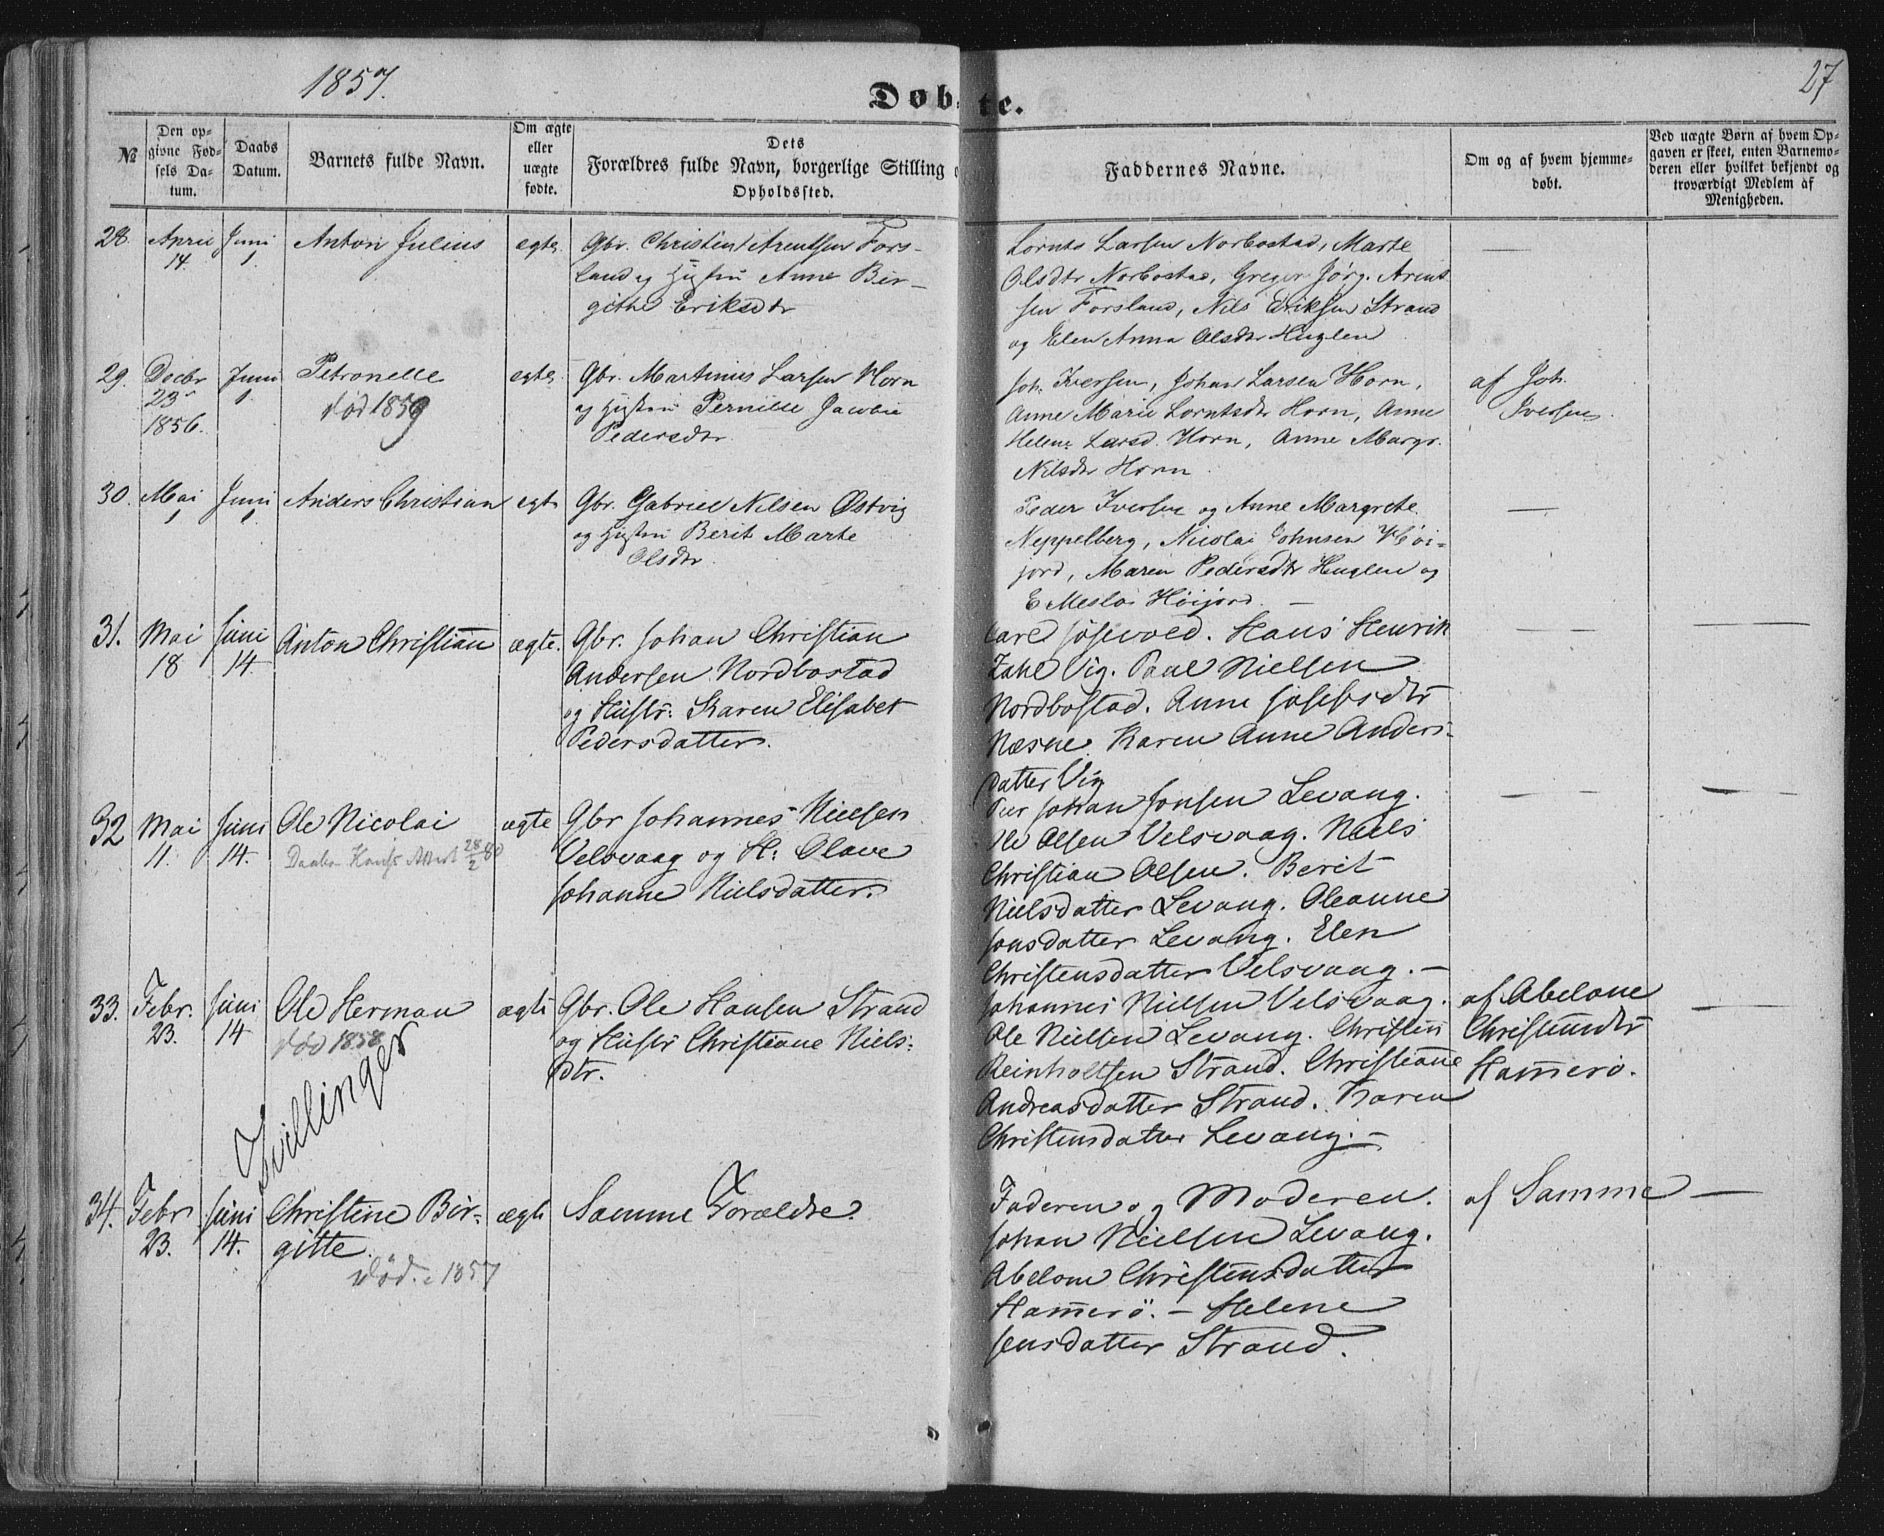 1857.
Døbte.
27
№
Den opgivne Fødsels Datum.
Daabs Datum.
Barnets fulde Navn.
Om ægte eller uægte fødte.
Dets Forældres fulde Navn, borgerlige Stilling
Opholdssted.
Faddernes Navne.
Om og af hvem hjemmedøbt.
Ved uægte Børn af hvem Opgaven er skeet, enten Barnemoderen eller hvilket bekjendt og troværdigt Medlem af Menigheden.
28. April 14. Juni 1 Anton Julius egte
Gbr. Christen Arentsen Fors-
land og Hustru Anne Bir-
gitte Eriksdtr
Lornts Larsen Norbostad, Marte
Olsdtr Norbostad, Greger Jørg. Arent
sen Forsland, Nils Eriksen Strand
og Elen Anna Olsdtr Huglen
29. Decbr 23 1856. Juni 1 Petronelle egte
død 1859
Gbr. Martinus Larsen Horn
og Hustru Pernille Jacobie
Pedersdtr
Joh. Iversen, Johan Larsen Horn,
Anne Marie Lorntsdtr Horn, Anne
Helene Larsd. Horn, Anne Margr.
Nilsdtr Horn.
af Joh.
Iversen.
30. Mai 1 Juni 1 Anders Christian egte
Gbr. Gabriel Nilsen Østvig
og Hustru Berit Marte
Olsdtr.
Peder Iversen og Anne Margrete
Neppelberg, Nicolai Johnsen Høi-
jord, Maren Pedersdtr Huglen og
E Meslo Høijord. —
31. Mai 18 Juni 14. Anton Christian ægte.
Gbr. Johan Christian
Andersen Nordbostad
og Hustr: Karen Elisabet
Pedersdatter.
Carl Josevold. Hans Henrik
Zahl Vig. Paul Nielsen
Nordbostad. Anne Josefsdtr
Næsne. Karen Anne Anders-
datter Vig
32 Mai 11. Juni 14. Ole Nicolai ægte
Gbr Johannes Nielsen
Velsvaag og H: Olave
Johanne Nielsdatter.
Per Johan Jonsen Levang.
Ole Olsen Velsvaag. Niels
Christian Olsen. Berit
Nielsdatter Levang. Oleanne
Jonsdatter Levang. Elen
Christensdatter Velsvaag. —
33. Febr. 23. Juni 14 Ole Herman ægte
død 1858
Gbr. Ole Hansen Strand
og Hustr Christiane Niels-
dtr.
Johannes Nielsen Velsvaag.
Ole Nielsen Levang. Christen
Reinholtsen Strand. Christiane
Andreasdatter Strand. Karen
Christensdatter Levang. —
af Abelone
Christensdtr
Hamerø.
Tvillinger
34. Febr 23. Juni 14. Christine Bir-
gitte. ægte
død. 1857
Samme Forældre.
Faderen og Moderen.
Johan Nielsen Levang.
Abelone Christensdatter
Hamerö. — Helene
Jensdatter Strand.
af Samme